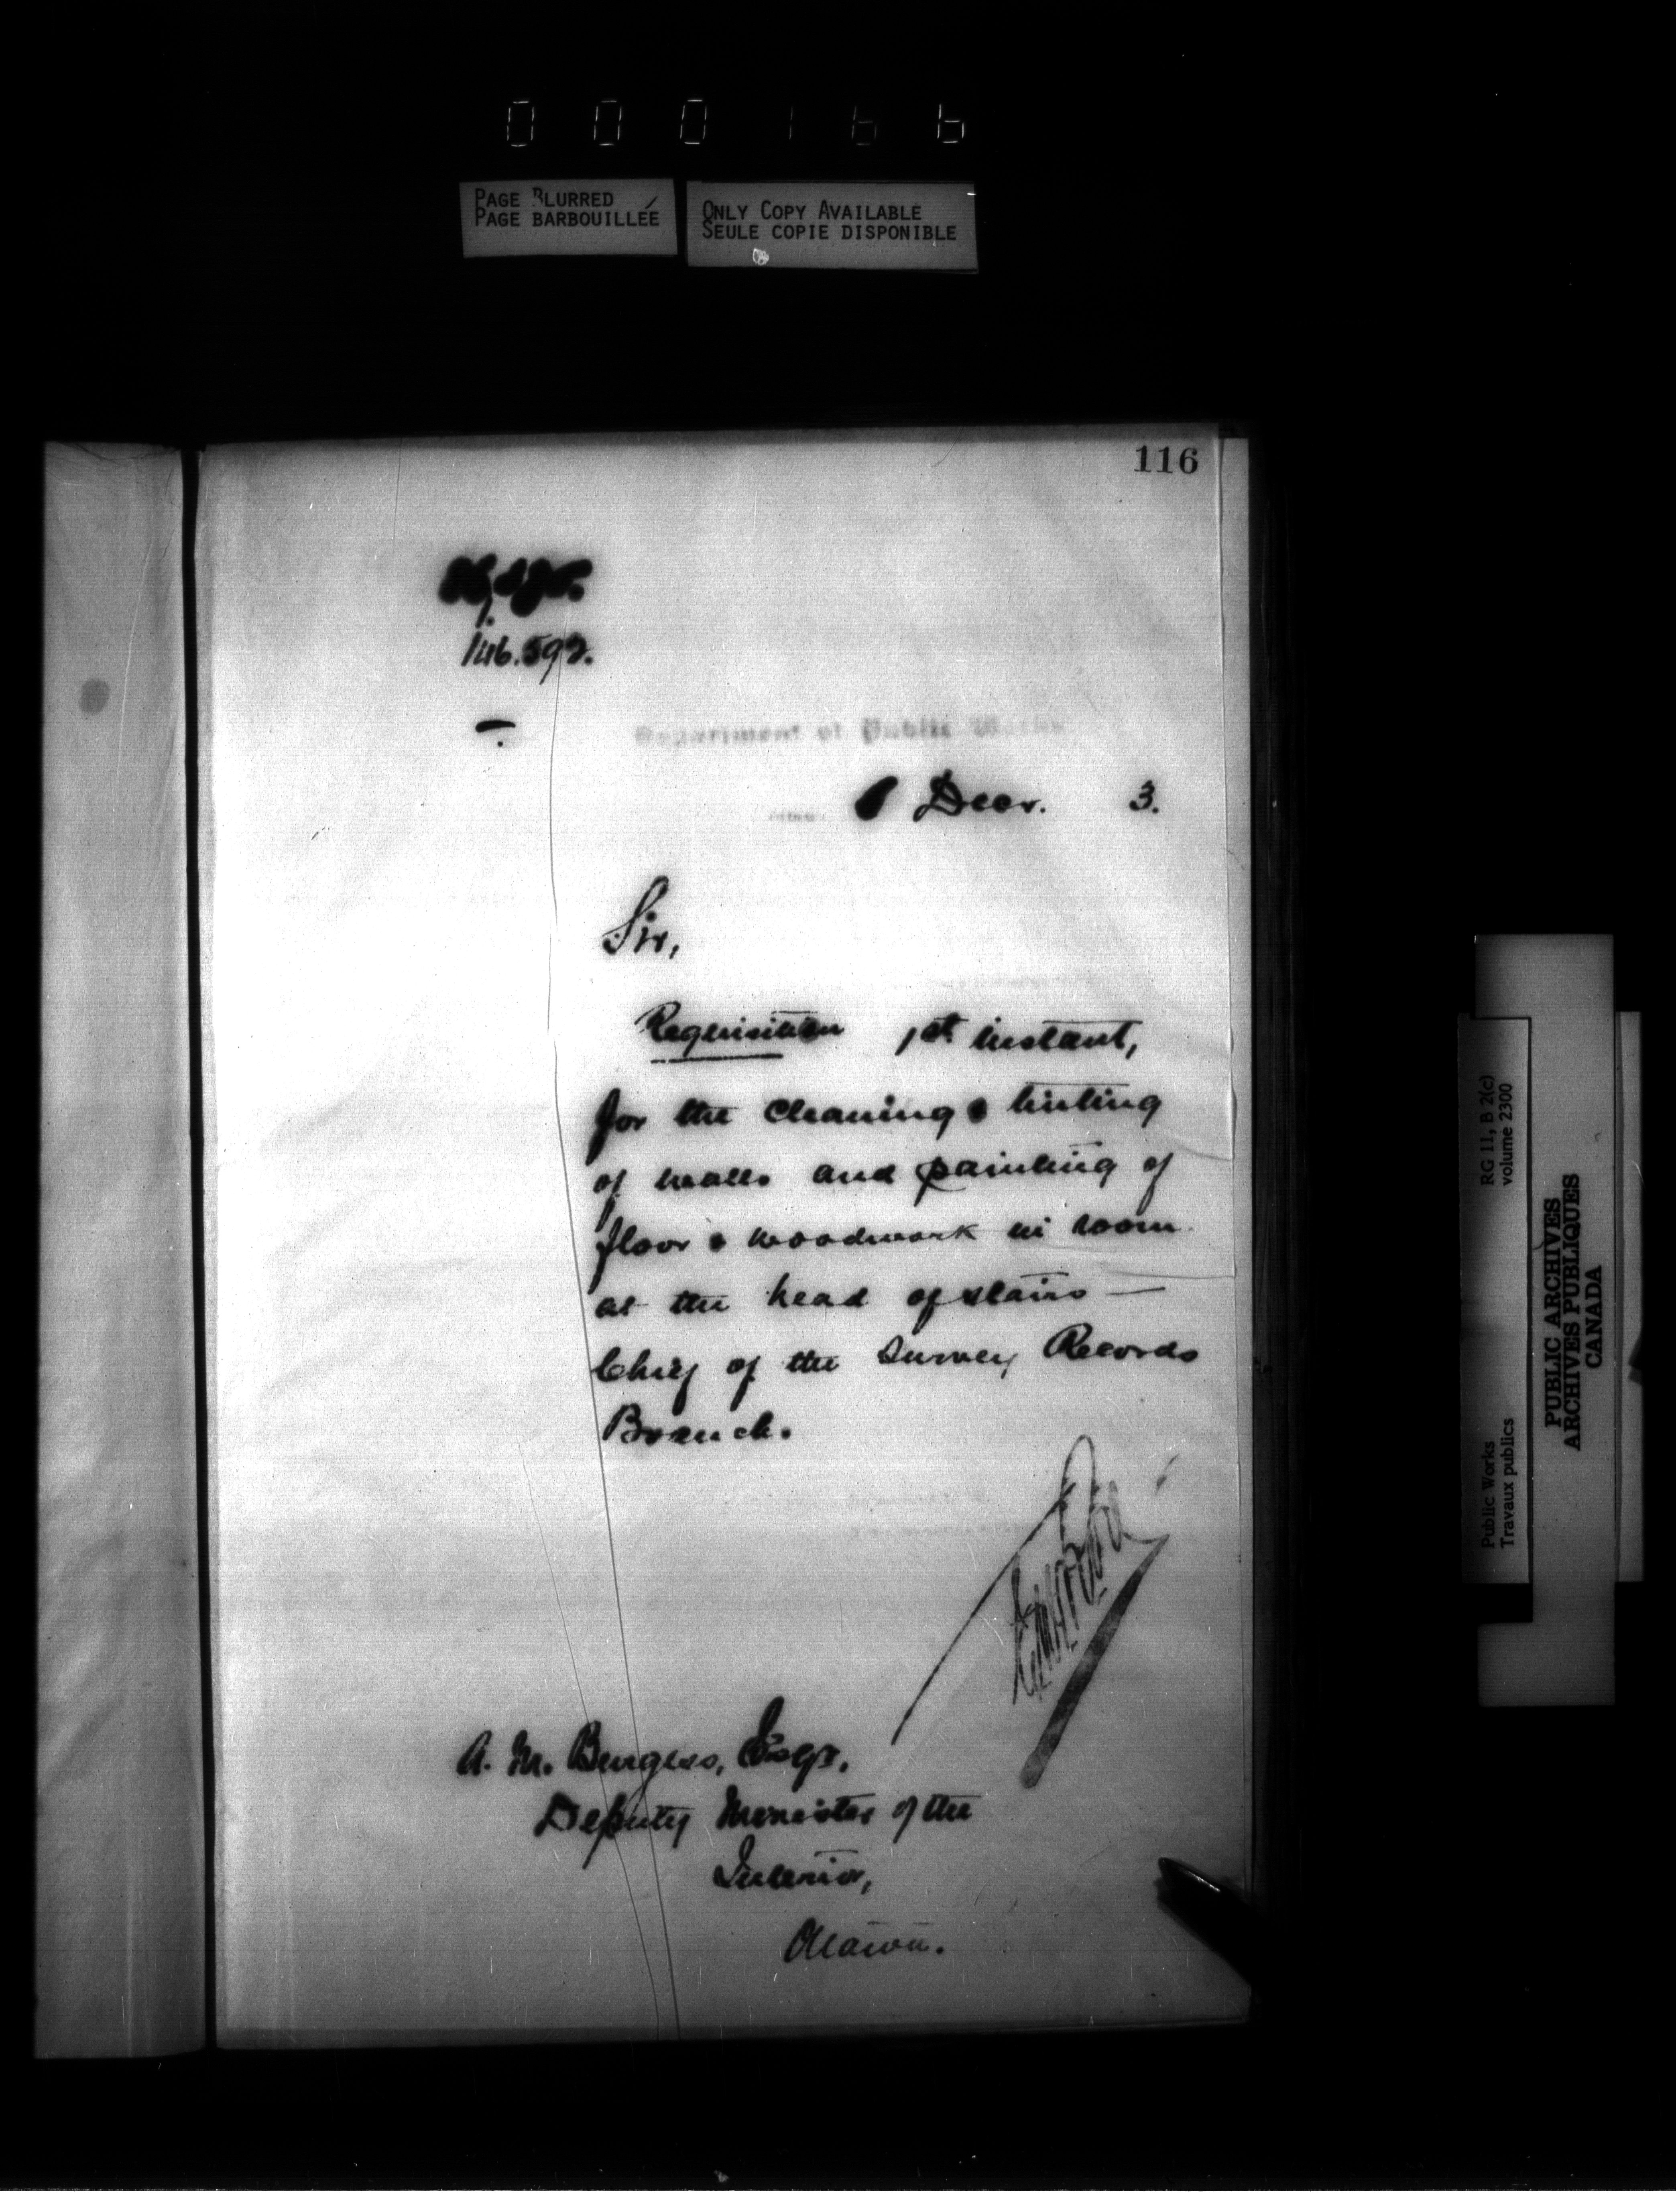 0 0 0 1 6 6
PAGE BLURRED
PAGE BARBOUILLÉE
ONLY COPY AVAILABLE
SEULE COPIE DISPONIBLE
116
146.592.
Department of Public Works
Decr. 3.
Sir,
Requisition 1st instant,
for the cleaning & tinting
of walls and painting of
floor & woodwork in room
at the head of stairs —
Chief of the Survey Records
Branch.
A. M. Burgess, Esqr.
Deputy Minister of the
Interior,
Ottawa.
Public Works
Travaux publics
RG 11, B 2(c)
volume 2300
PUBLIC ARCHIVES
ARCHIVES PUBLIQUES
CANADA